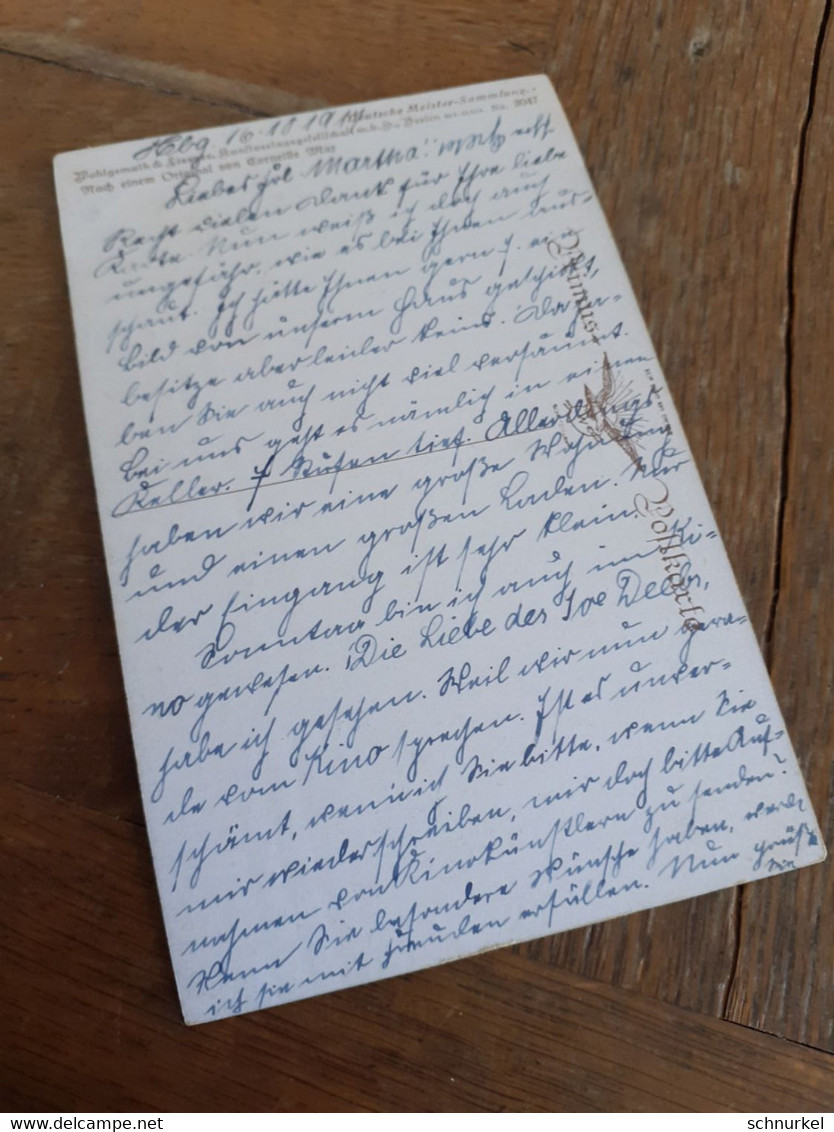 Deutsche Meister-Sammlung.
Kunstverlagsgesellschaft m. b. H., Berlin No. 3047
Nach einem Original von Cornelia May
Hbg
Liebes Frl Martha!
Recht vielen Dank für Ihre liebe
Karte. Nun weiß ich doch auch
ungefähr, wie es bei Ihnen aus-
schaut. Ich hätte Ihnen gern ein
Bild von unserm Haus geschickt,
besitze aber leider keins. Da ha-
ben Sie auch nicht viel versäumt.
Bei uns geht es nämlich in einen
Keller. 7 Stufen tief. Allerdings
haben wir eine große Wohnung
und einen großen Laden. Nur
der Eingang ist sehr klein.
Sonntag bin ich auch im Ki-
no gewesen. „Die Liebe des Joe Deebs,
habe ich gesehen. Weil wir nun gera-
de vom Kino sprechen. Ist es unver-
schämt, wenn ich Sie bitte, wenn Sie
mir wiederschreiben, mir doch bitte Auf-
nahmen von Kinokünstlern zu senden?
Wenn Sie besondere Wünsche haben, werde
ich sie mit Freuden erfüllen. Nun grüßt
Sie
Primus-
Postkarte
schnurkel
www.delcampe.net